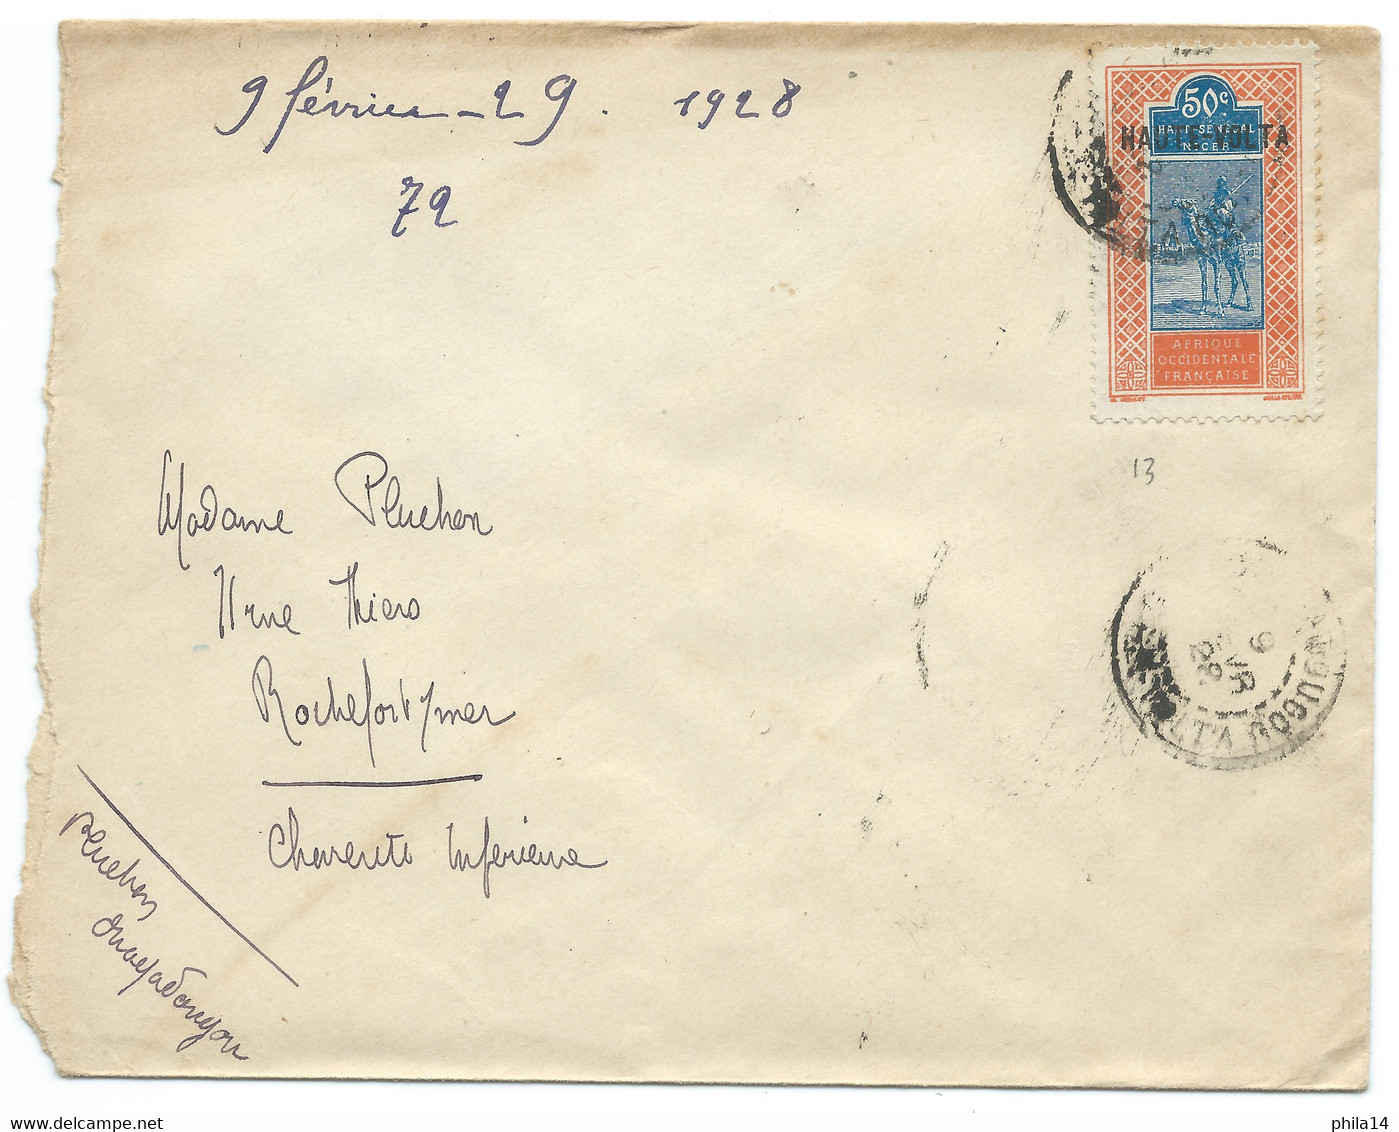 9 février - 29. 1928
72
50c
HAUT-SÉNÉGAL
NIGER
HAUTE-VOLTA
AFRIQUE
OCCIDENTALE
FRANÇAISE
13
Madame Pluchon
11 rue Thiers
Rochefort s/mer
Charente Inférieure
9
FVR
28
VOLTA OUAGADOUGOU
Pluchon
Ouagadougou
phila14